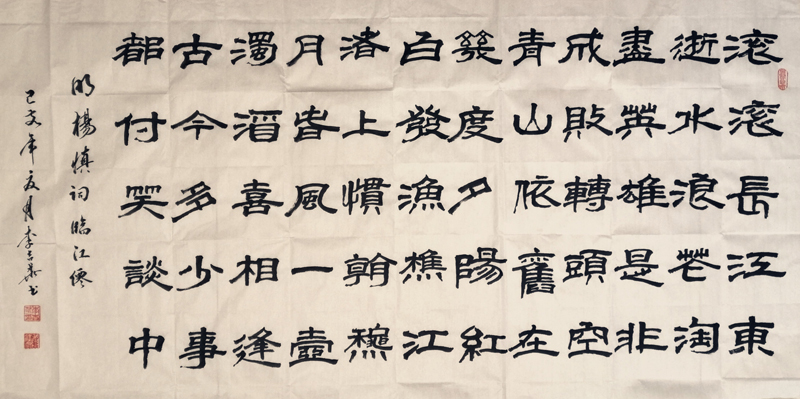 滚滚長江東
逝水浪花淘
盡英雄是非
成敗轉頭空
青山依舊在
幾度夕陽紅
白發漁樵江
渚上慣看秋
月春風一壺
濁酒喜相逢
古今多少事
都付笑談中
明楊慎詞臨江僊
己亥年夏月李書